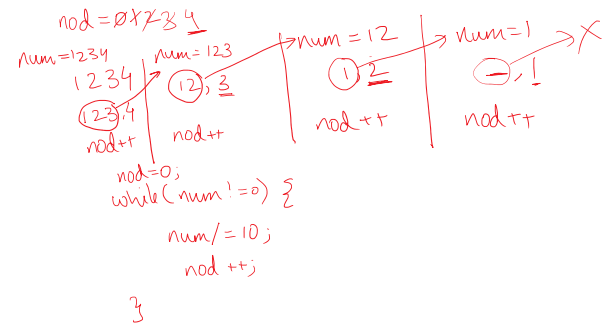 nod=0 1 2 3 4
num=1234
1234
123,4
nod++
num=123
12,3
nod++
num=12
1,2
nod++
num=1
-,1
nod++
X
nod=0;
while(num!=0) {
num/=10;
nod++;
}